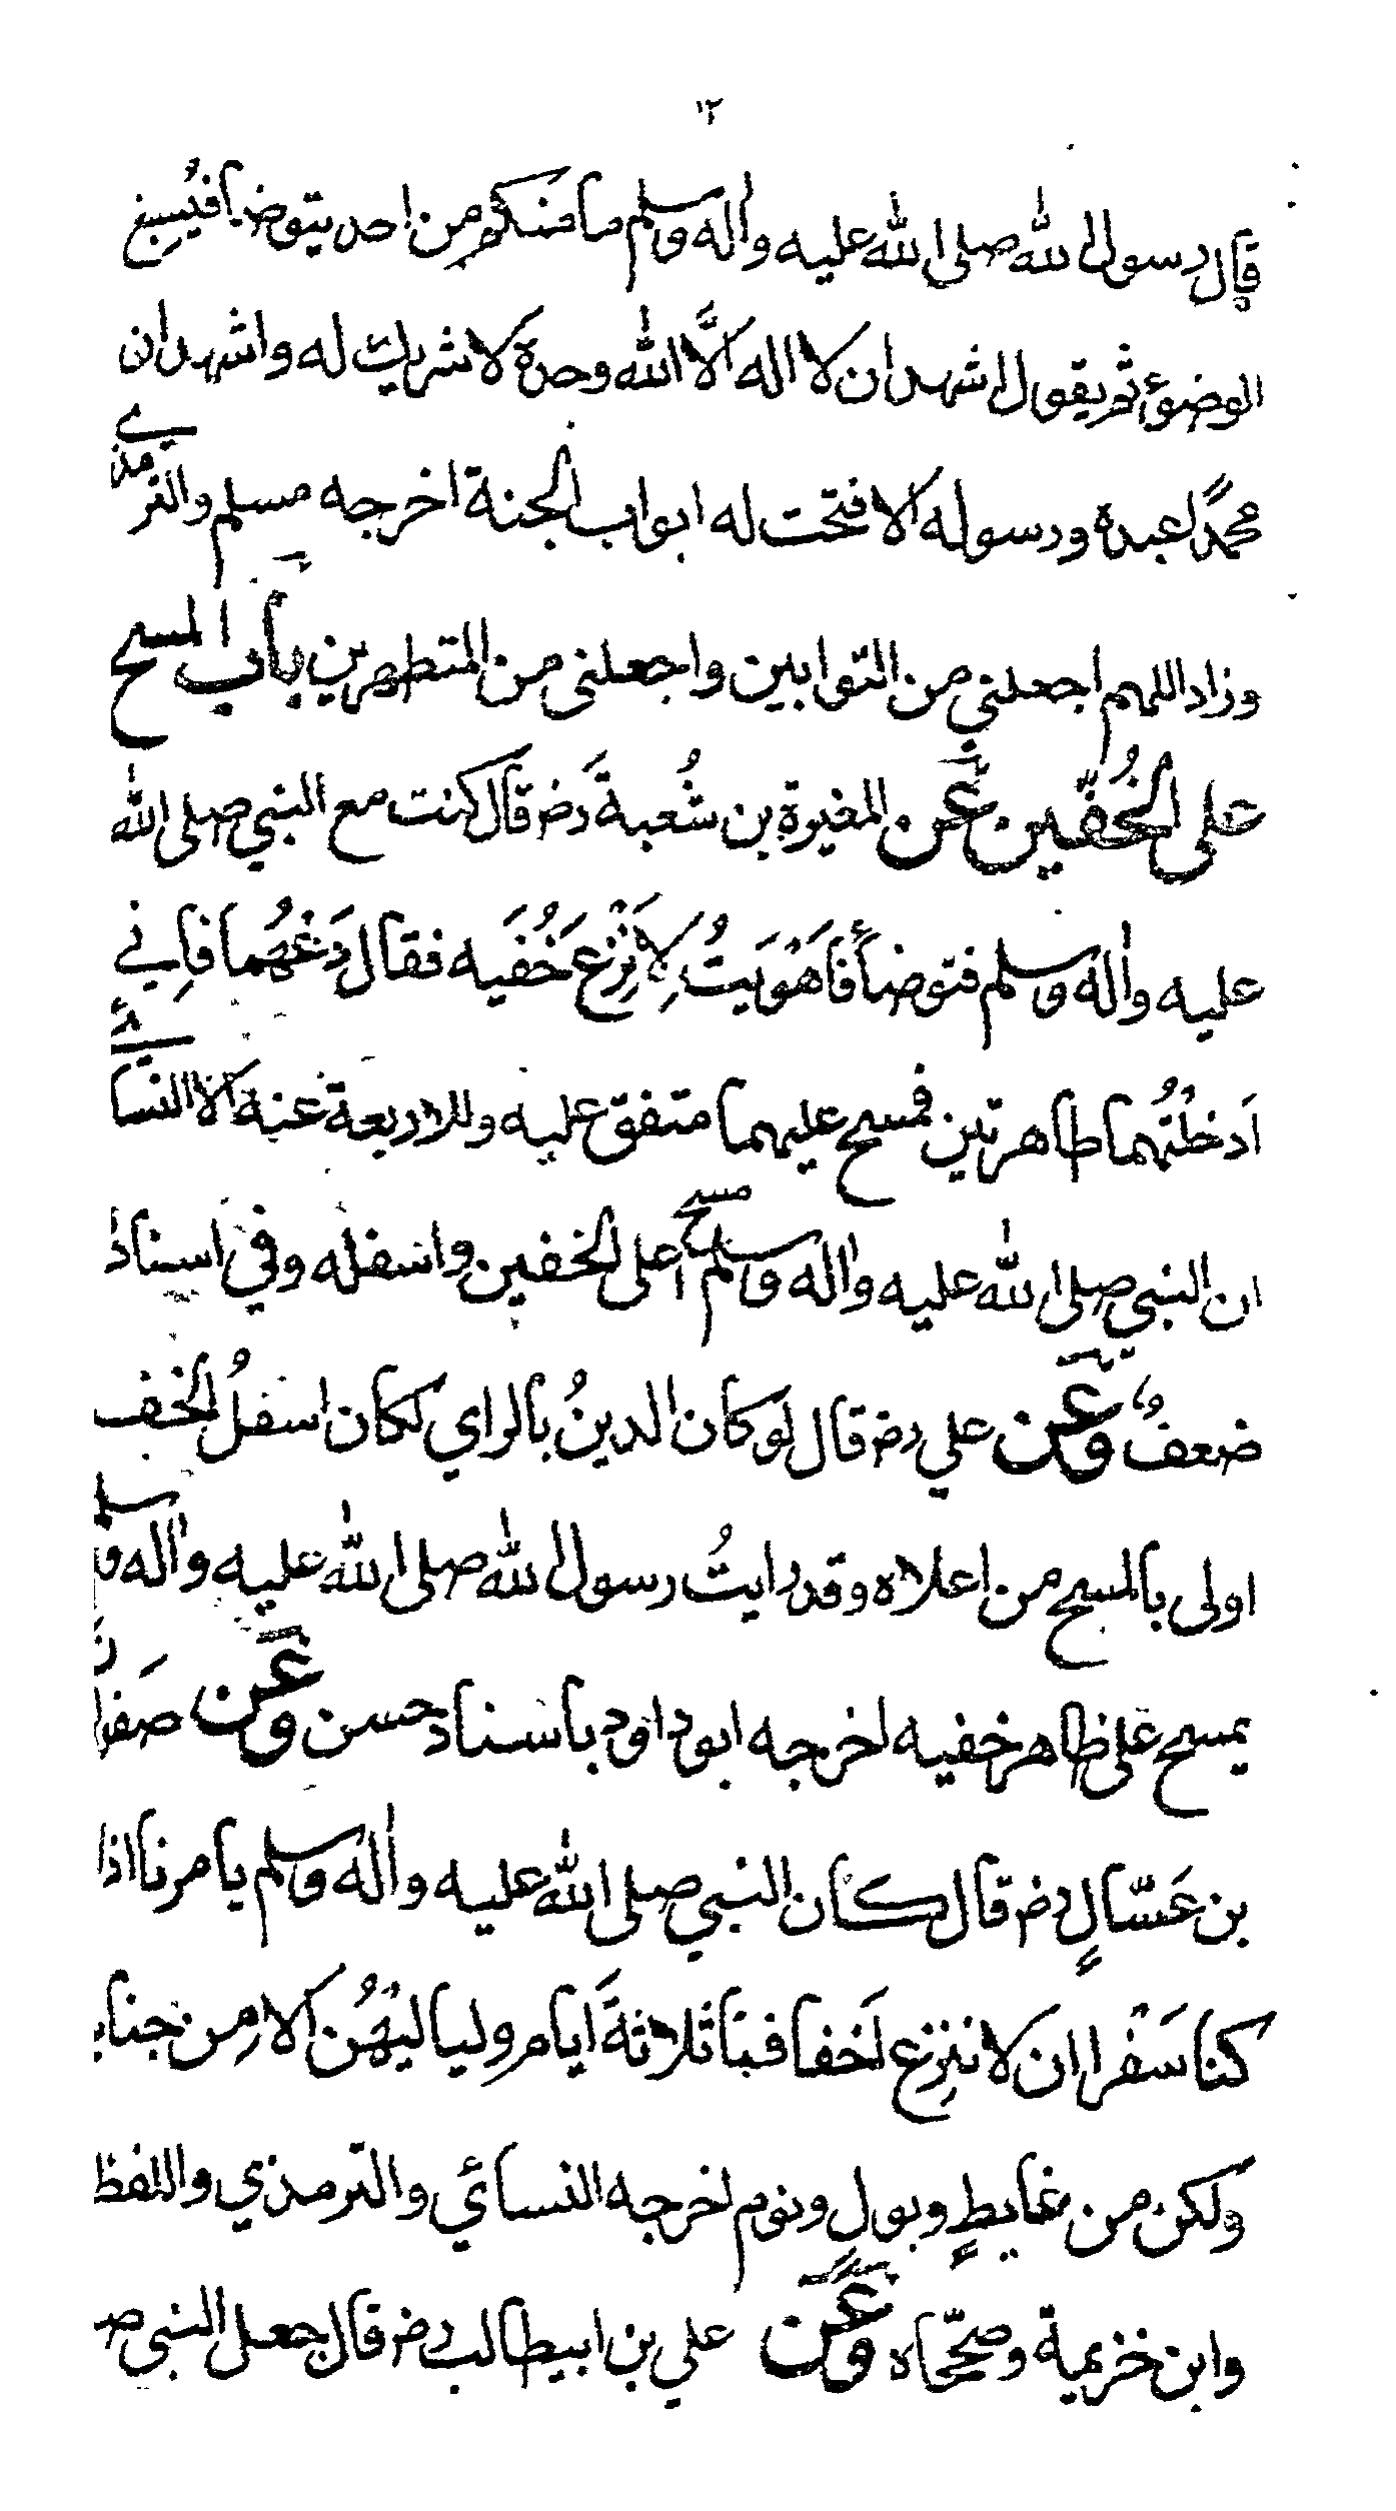 ١٢
قال رسول الله صلى الله عليه واله وسلم ما منكم من احد يتوضا فيُسبغ
الوضوء ثم يقول اشهد ان لا اله الَّا الله وحده لا شريك له واشهد ان
محمدًا عبده ورسوله الا فتحت له ابواب الجنة اخرجه مسلم والترمذي
وزاد اللهم اجعلني من التوابين واجعلني من المتطهرين باب المسح
على الخُفّين عَن المغيرة بن شُعبةَ رضـ قال كنت مع النبي صلى الله
عليه واله وسلم فتوضأ فاَهْوَيتُ لِاَنْزِعَ خُفَيه فقال دَعْهُما فاِني
اَدخلتُهُما طاهرتين فمسح عليهما متفق عليه وللاربعة عنه الا النسائي
ان النبي صلى الله عليه واله وسلم مسح اعلى الخفين واسفله وفي اسناده
ضعفٌ وعَن علي رضـ قال لو كان الدينُ بالراي لكان اسفلُ الخف
اولى بالمسح من اعلاه وقد رايتُ رسول الله صلى الله عليه واله وسلم
يمسح على ظاهر خفيه اخرجه ابو داود باسناد حسن وعَن صَفوان
بن عَسّالٍ رضـ قال كان النبي صلى الله عليه واله وسلم يامرنا اذا
كنا سَفْرا ان لا ننزِع خَفافنا ثلاثةَ ايام ولياليهُن الا من جنابـ
ولكن من غايطٍ وبول ونوم اخرجه النسائي والترمذي واللفظ
وابن خزيمة وصحّحاه وعَن علي بن ابيطالب رضـ قال جعل النبي صـ